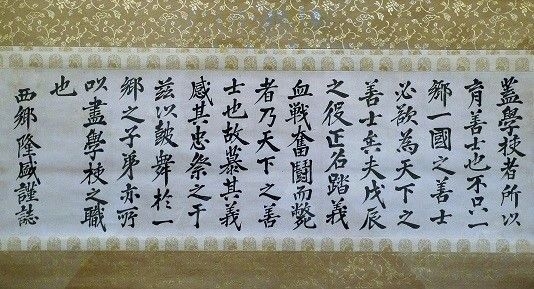 蓋學校者所以
育善士也不只一
鄉一國之善士
必欲為天下之
善士矣夫戊辰
之役正名踏義
血戰奮鬪而斃
者乃天下之善
士也故慕其義
感其忠祭之于
茲以皷舞於一
鄉之子弟亦所
以盡學校之職
也
西鄉隆盛謹誌